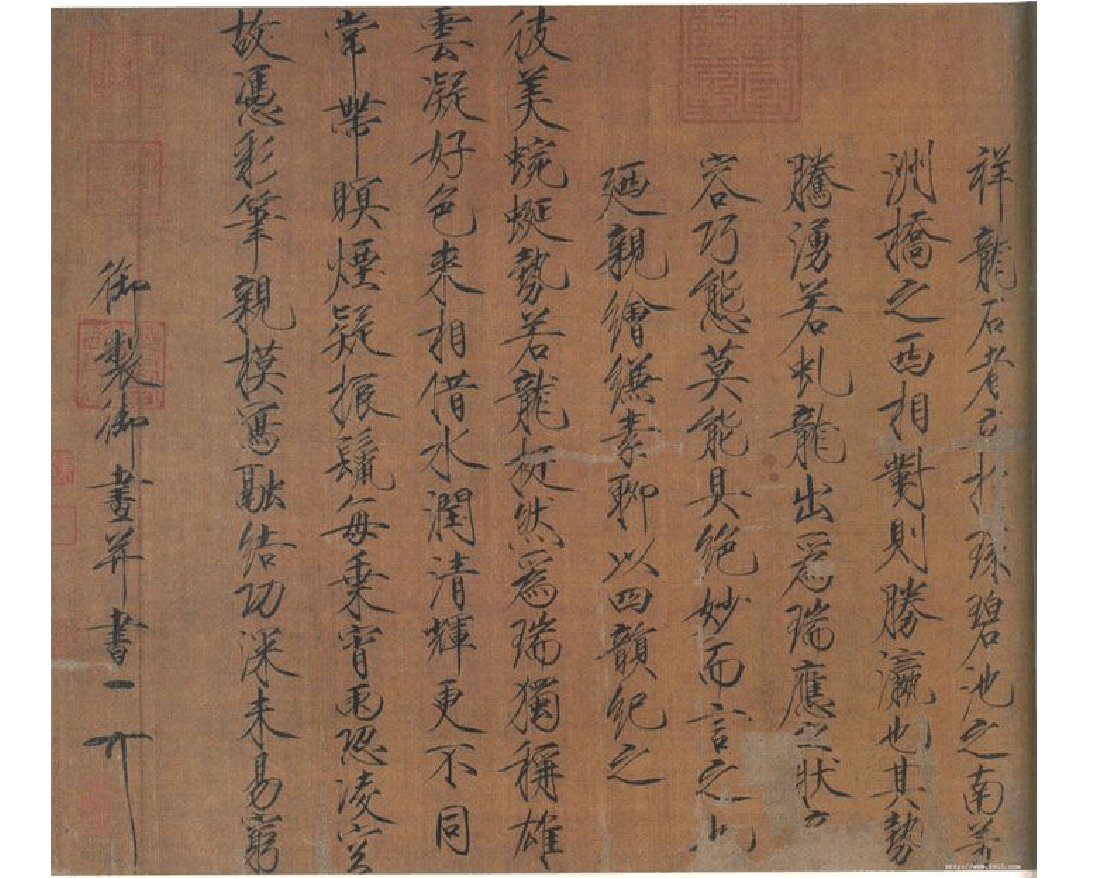 祥龍石者立於環碧池之南芳
洲橋之西相對則勝瀛也其勢
騰湧若虬龍出爲瑞應之狀
容巧態莫能具絶妙而言之
廼親繪縑素聊以四韻紀之
彼美蜿蜒勢若龍挺然爲瑞獨稱雄
雲凝好色來相借水潤清輝更不同
常帶暝煙疑振鬣每乘宵雨恐凌空
故憑彩筆親模寫融結功深未易窮
御製御畫并書